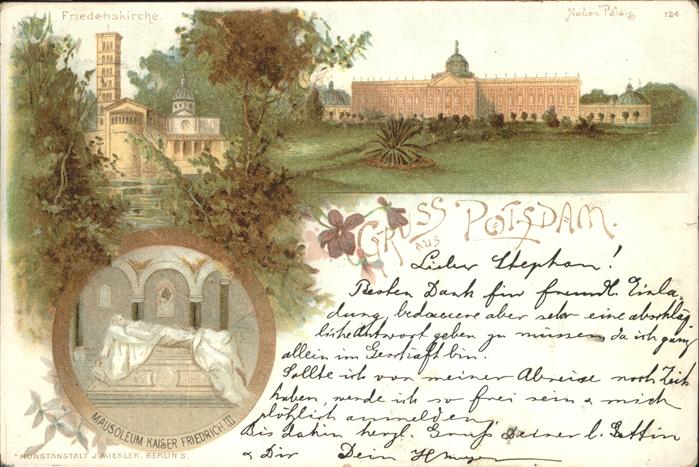 Friedenskirche.
Neues Palais
124
GRUSS
aus
POTSDAM.
Lieber Stephan!
Besten Dank für freundl. Einla-
dung, bedauere aber sehr eine abschläg
liche Antwort geben zu müssen, da ich ganz
allein im Geschäft bin.
Sollte ich vor meiner Abreise noch Zeit
haben, werde ich so frei sein & mich
plötzlich anmelden
Bis dahin herzl. Gruß Deiner l. Gattin
& Dir Dein
MAUSOLEUM KAISER FRIEDRICH III
KUNSTANSTALT J. MIESLER, BERLIN S.